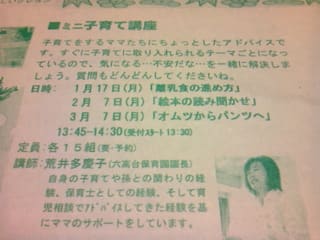 ■ミニ子育て講座
子育てをするママたちにちょっとしたアドバイスで
す。すぐに子育てに取り入れられるテーマごとになっ
ているので、気になる…不安だな…を一緒に解決しま
しょう。質問もどんどんしてくださいね。
日時: 1月17日(月)「離乳食の進め方」
2月 7日(月)「絵本の読み聞かせ」
3月 7日(月)「オムツからパンツへ」
13:45~14:30(受付スタート 13:30)
定員:各15組(要・予約)
講師:荒井多慶子(六高台保育園園長)
自身の子育てや孫との関わりの経
験、保育士としての経験、そして育
児相談でアドバイスしてきた経験を基
にママのサポートをしています。